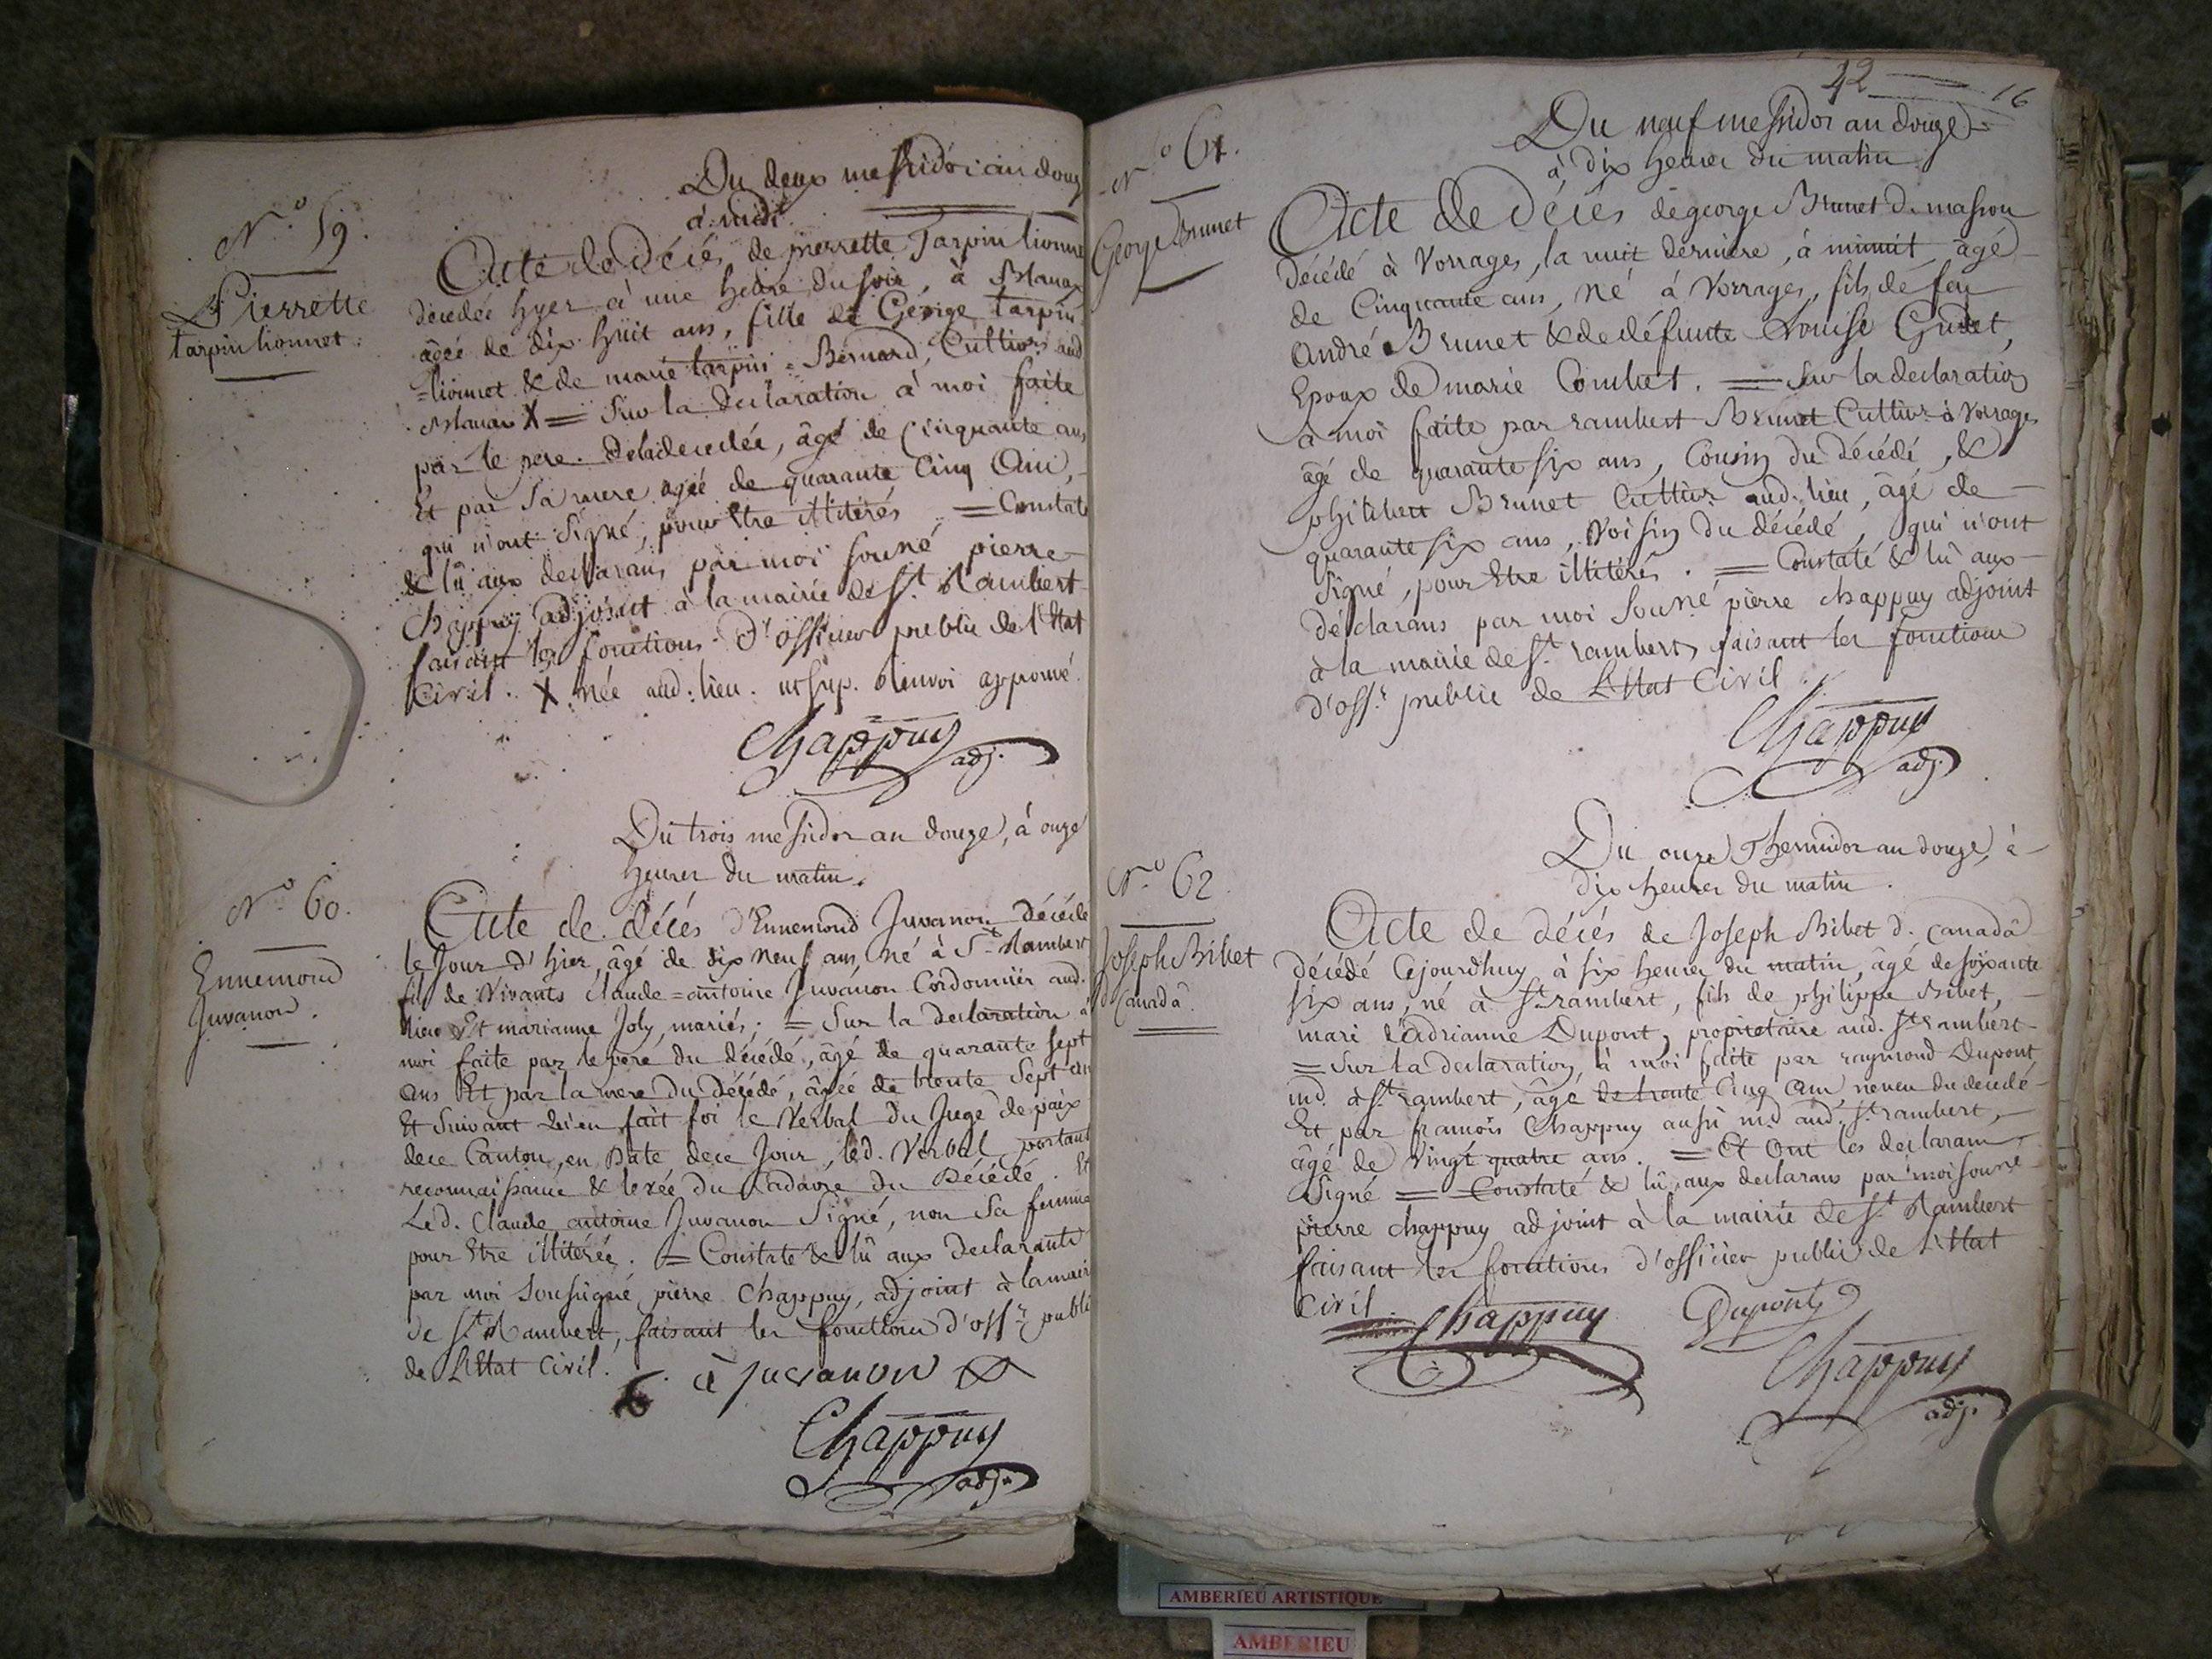 Du deux messidor an douz
à midi
N.o 59.
Pierrette
tarpin lionnet.
Acte de Décés de pierrette Tarpin lionne
décedée hyer à une heure du soir, à Blanas
âgée de dix huit ans, fille de George tarpin
=lionnet & de marie tarpin = Bernard, Cultivrs aud
Blanas X = Sur la declaration à moi faite
par le pere. deladecedée, âgé de Cinquante ans
Et par sa mere agée de quarante Cinq Ans,
qui n'ont Signé, pour Etre illitérés, = Constate
& lû aux declarans par moi souné pierre
Chappuy adjoint à la mairie de St. Rambert
faisant les fonctions d'officier public de l'Etat
Civil. X née aud. lieu. ut sup. Renvoi approuvé.
Chappuy
adj.
Du trois messidor an douze, à onze
heures du matin.
N.o 60.
Ennemond
Juvanon.
Acte de décés d'Ennemond Juvanon décédé
le jour d'hier, âgé de dix neuf ans, né à St. Rambert
fils de Vivants Claude=antoine Juvanon Cordonnier aud.
lieu Et marianne Joly, mariés. = Sur la declaration à
moi faite par le pere du décédé, âgé de quarante sept
ans Et par la mere du Décédé, âgée de trente Sept ans
Et Suivant qu'en fait foi le Verbal du Juge de paix
dece Canton, en Date dece Jour, led. Verbal portant
reconnaissance & levée du Cadavre du Décédé. Et
Led. Claude antoine Juvanon Signé, non Sa femme
pour Etre illitérée. = Constate & lû aux Declarants
par moi Soussigné pierre Chappuy, adjoint à lamair
de St. Rambert, faisant les fonctions d'offr. publi
de L'Etat Civil.
à juvanon
Chappuy
adj.
42
16
Du neuf messidor an douze
à dix heures du matin
N.o 61.
George Brunet
Acte de Décés de george Brunet D. masson
décédé à Vorrages, la nuit derniere, à minuit, âgé
de Cinquante ans, né à Vorrages, fils de feu
André Brunet & de défunte Louise Gudet,
Epoux de marie Combet. = Sur la declaration
à moi faite par rambert Brunet Cultivr à Vorrages
âgé de quarante six ans, Cousin du décédé, &
philibert Brunet Cultivr aud. lieu, âgé de
quarante six ans, Voisin du décédé, qui n'ont
Signé, pour Etre illitérés. = Constaté & lû aux
déclarans par moi Souné pierre chappuy adjoint
à la mairie de St. rambert, faisant les fonctions
d'offr. public de L'Etat Civil.
Chappuy
adj.
Du onze Thermidor an douze, à
dix heures du matin.
N.o 62
Joseph Bibet
d. Canadâ.
Acte de décés de Joseph Bibet d. Canadâ
décédé Cejourdhuy à six heures du matin, âgé de soixante
six ans, né à St. rambert, fils de philippe Bibet,
mari d'Adrianne Dupont, propriétaire aud. St. rambert
= Sur la declaration, à moi faite par raymond Dupont
md. à St. rambert, âgé de trente Cinq Ans, neveu du decedé
Et par francois Chappuy aussi md. aud. St. rambert,
âgé de Vingt quatre ans. = Et Ont les declarans
Signé = Constaté & lû aux declarans par moi souné
pierre chappuy adjoint à la mairie de St. Rambert
faisant les fonctions d'officier public de L'Etat
Civil.
Chappuy
Dupont
Chappuy
adj.
AMBERIEU ARTISTIQUE
AMBERIEU